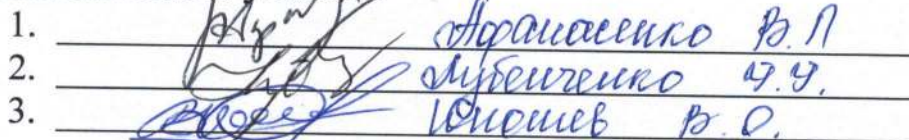 1. Афанасенко В.П
2. Лубенченко И.И.
3. Юношев В.О.